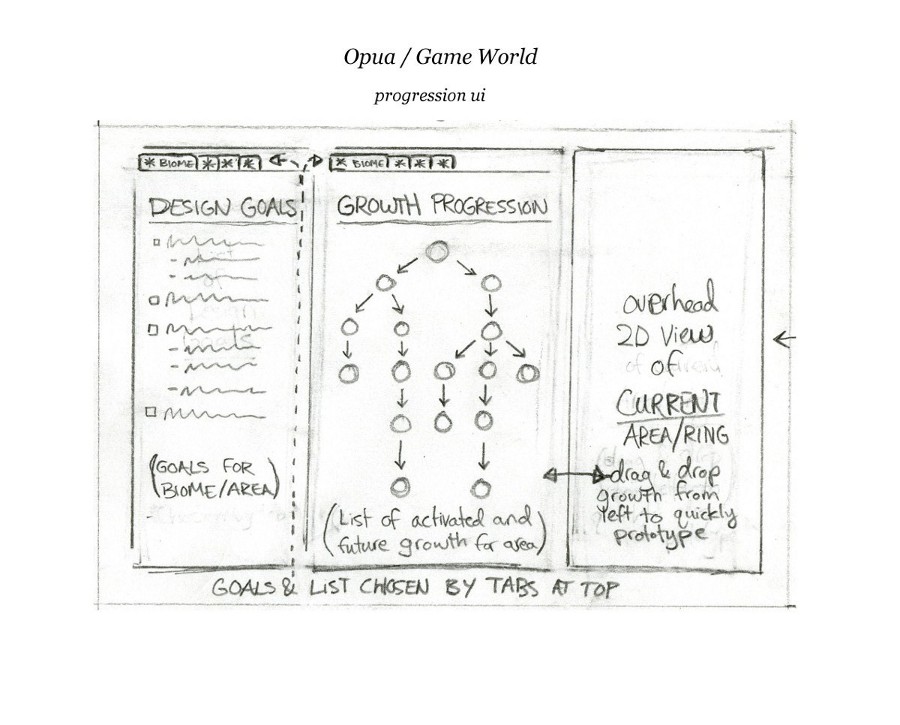 Opua / Game World
progression ui
* BIOME * * *
* BIOME * * *
DESIGN GOALS
GROWTH PROGRESSION
(GOALS FOR
BIOME/AREA)
(List of activated and
future growth for area)
overhead
2D View
of
CURRENT
AREA/RING
drag & drop
growth from
left to quickly
prototype
GOALS & LIST CHOSEN BY TABS AT TOP